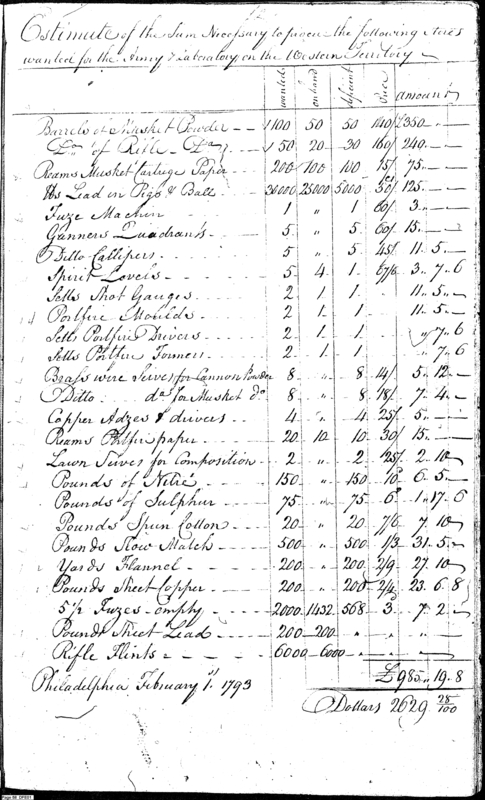 Estimate of the Sum Necessary to procure the following Stores
wanted for the Army & Laboratory on the Western Territory
wanted on hand deficient Price amount
Barrels of Musket Powder 100 50 50 140/ £350
Do. of Rifle Do. 50 20 30 160/ 240
Reams Musket Cartrige Paper 200 100 100 15/ 75
lbs Lead in Pigs & Ball 30000 25000 5000 50/ 125
Fuze Machin 1 " 1 60/ 3
Gunners Quadrants 5 " 5 60/ 15
Ditto Callipers 5 " 5 45/ 11 5
Spirit Levels 5 4 1 67/6 3 7 6
Setts Shot Gauges 2 1 1 11 5
Portfire Moulds 2 1 1 11 5
Setts Portfire Drivers 2 1 1 " 7 6
Setts Portfire Formers 2 1 1 " 7 6
Brass wire Sieves for Cannon Powder 8 " 8 14/ 5 12
Ditto do for Musket do 8 " 8 18/ 7 4
Copper Adzes & drivers 4 " 4 25/ 5
Reams Portfire paper 20 10 10 30/ 15
Lawn Sieves for Composition 2 " 2 25/ 2 10
Pounds of Nitre 150 " 150 10d 6 5
Pounds of Sulphur 75 " 75 6d 1 17 6
Pounds Spun Cotton 20 " 20 7/6 7 10
Pounds Slow Match 500 " 500 1/3 31 5
Yards Flannel 200 " 200 2/9 27 10
Pounds Sheet Copper 200 " 200 2/4 23 6 8
5½ Fuzes empty 2000 1432 568 3 7 2
Pounds Sheet Lead 200 200 " " "
Rifle Flints 6000 6000 " " "
£985 19 8
Philadelphia February 1st. 1793
Dollars 2629 28/100